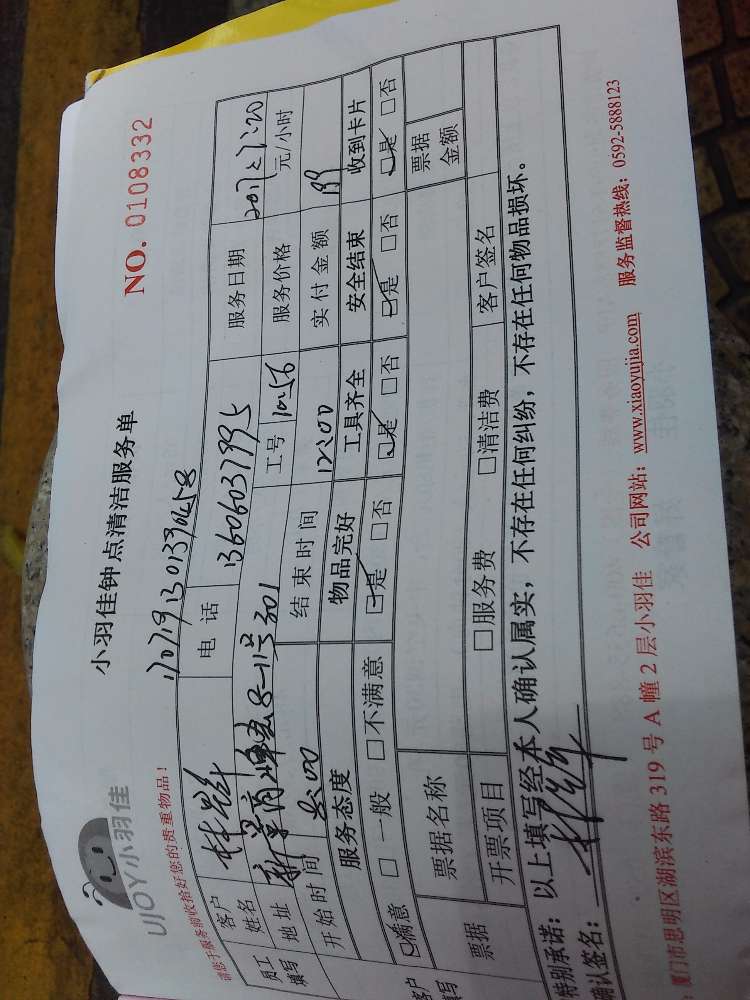 UJOY小羽佳
小羽佳钟点清洁服务单
NO. 0108332
请您于服务前收拾好您的贵重物品！
员工填写
客户姓名
电话 13606037995
服务日期
地址
工号 1056
服务价格 元/小时
开始时间 8:00
结束时间 12:00
实付金额
客户填写
服务态度 物品完好 工具齐全 安全结束 收到卡片
☑满意 □一般 □不满意 ☑是 □否 ☑是 □否 ☑是 □否 ☑是 □否
票据
票据名称
票据金额
开票项目 □服务费 □清洁费 客户签名
特别承诺：以上填写经本人确认属实，不存在任何纠纷，不存在任何物品损坏。
确认签名：
厦门市思明区湖滨东路 319 号 A 幢 2 层小羽佳 公司网站：www.xiaoyujia.com 服务监督热线：0592-5888123